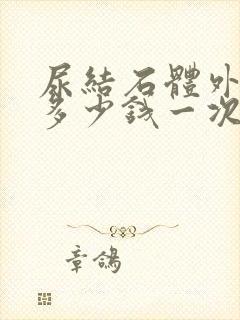 尿結石體外
多少錢一次
章鴿